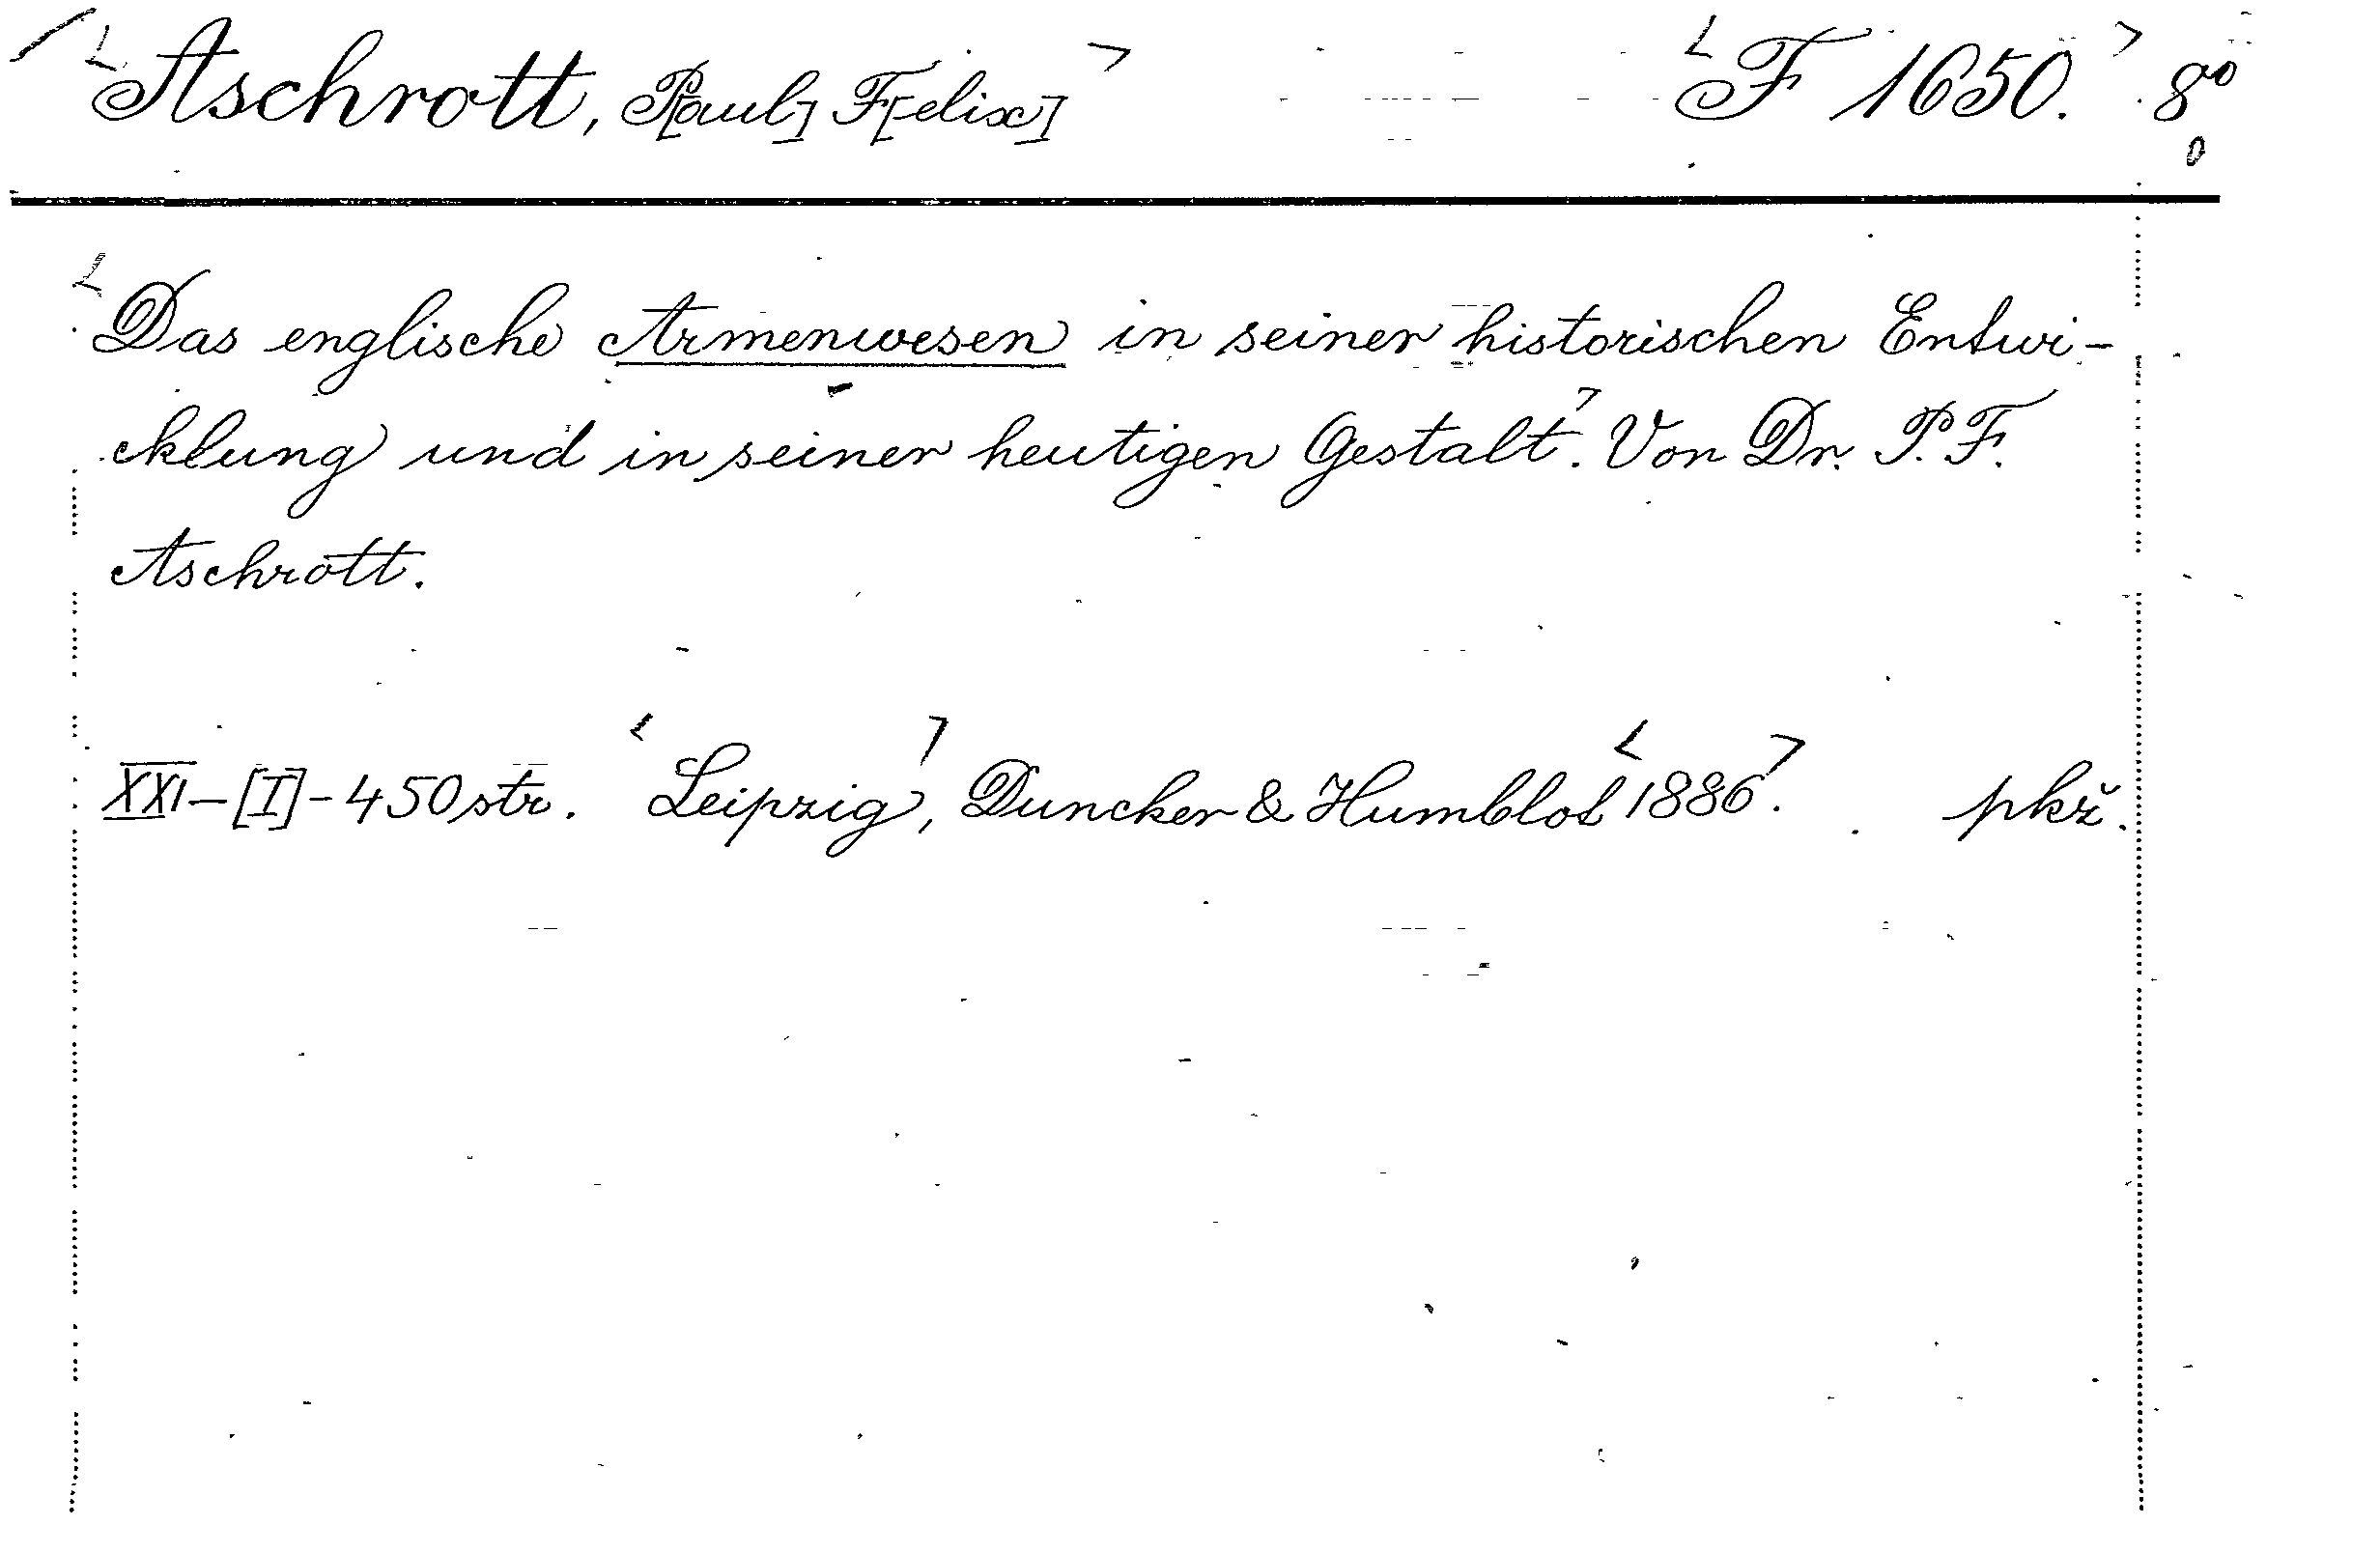 Aschrott, P[aul] F[elix] F 1650. 8°
Das englische Armenwesen in seiner historischen Entwi-
cklung und in seiner heutigen Gestalt. Von Dr. P. F.
Aschrott.
XXI-[I]-450 str. Leipzig, Duncker & Humblot 1886. pkž.